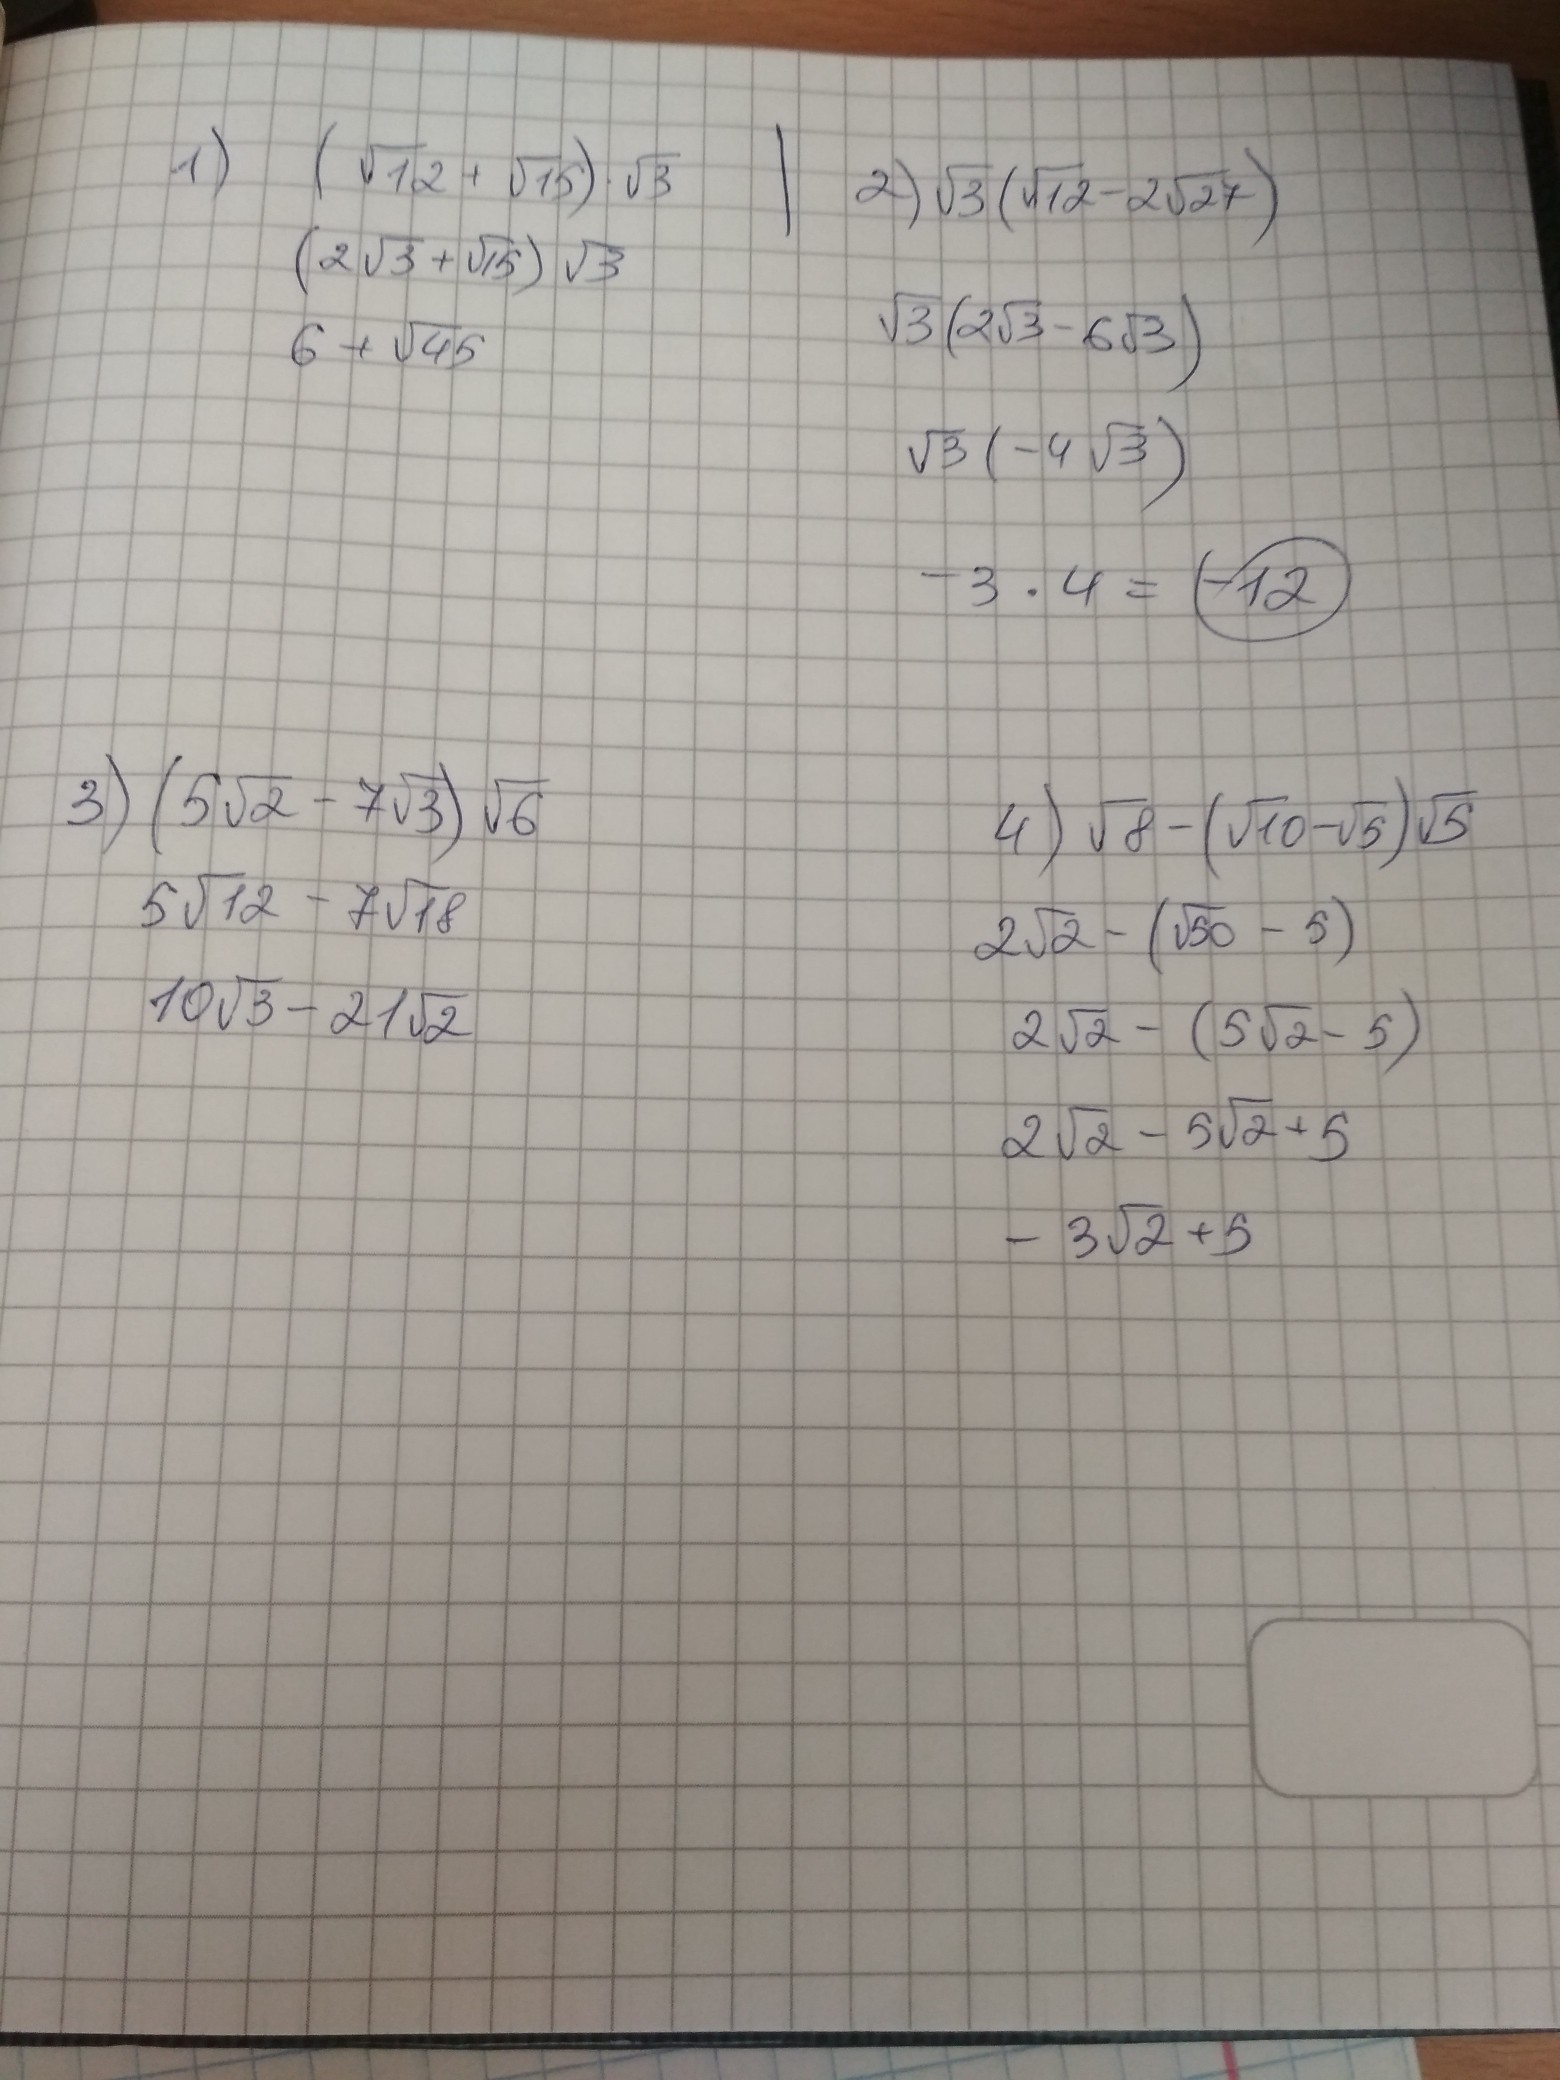 1) (√12 + √15) · √3
(2√3 + √15) √3
6 + √45
2) √3 (√12 - 2√27)
√3 (2√3 - 6√3)
√3 (-4√3)
-3 · 4 = -12
3) (5√2 - 7√3) √6
5√12 - 7√18
10√3 - 21√2
4) √8 - (√10 - √5) √5
2√2 - (√50 - 5)
2√2 - (5√2 - 5)
2√2 - 5√2 + 5
- 3√2 + 5